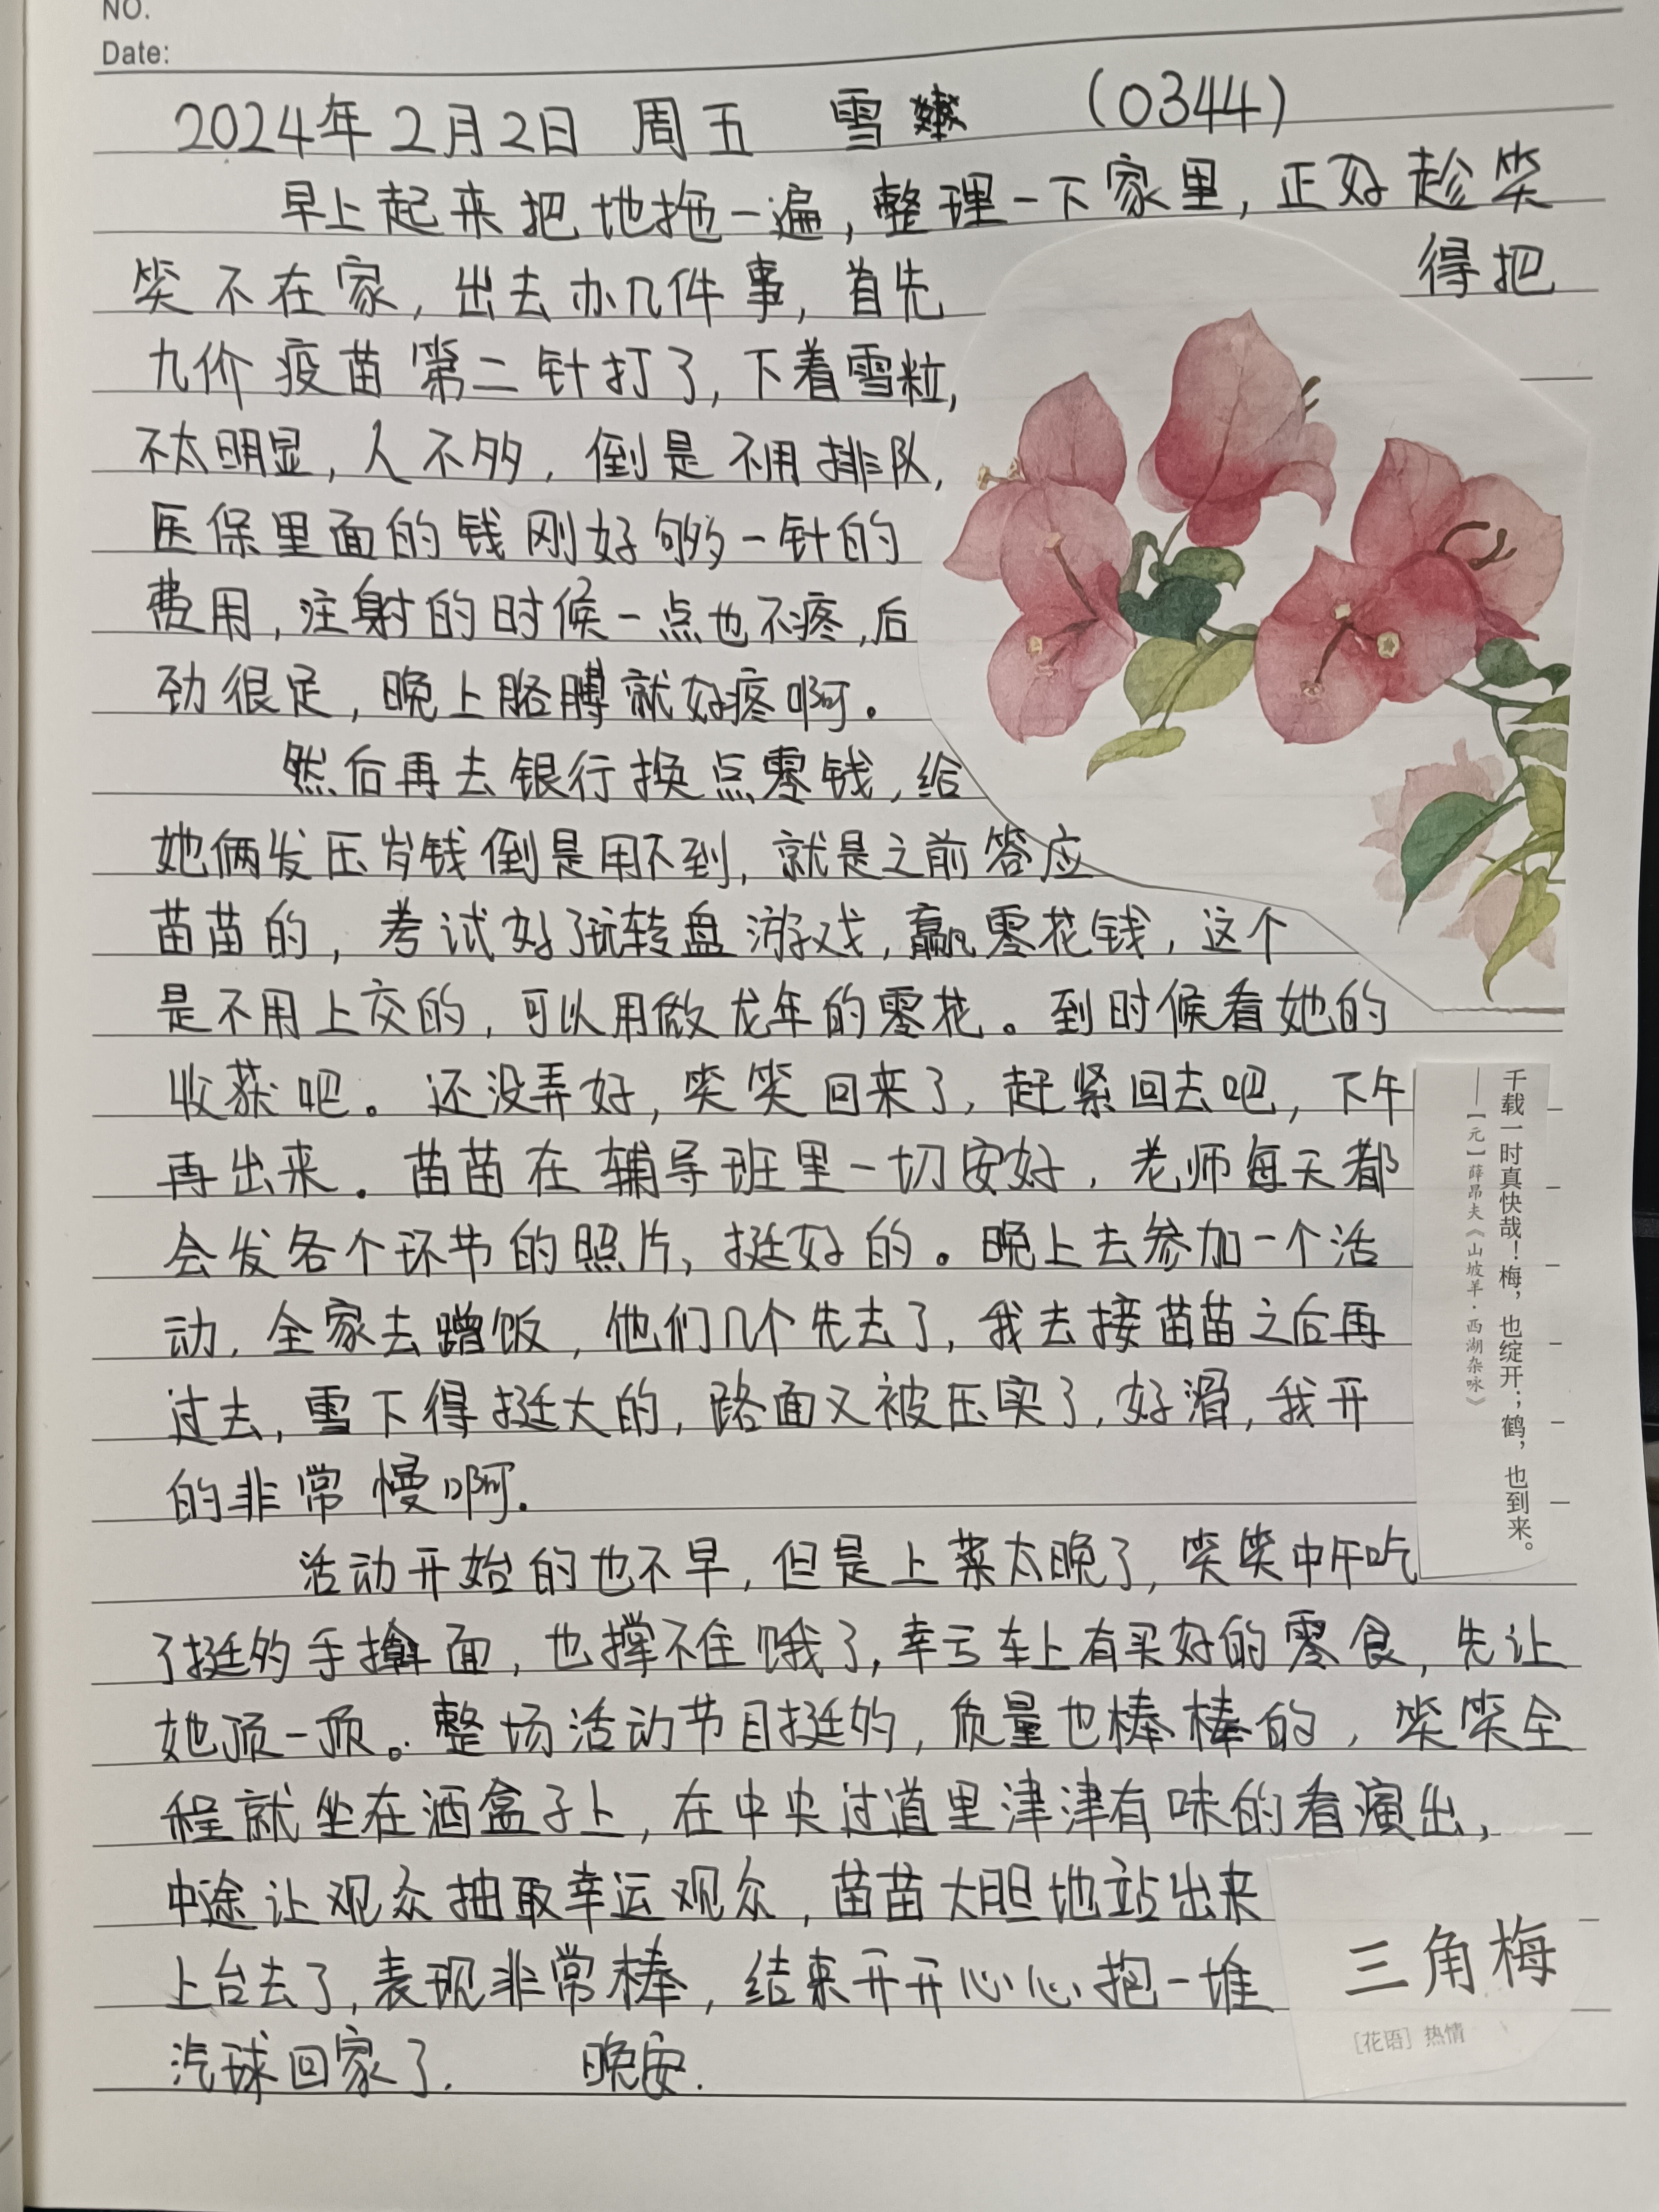 NO.
Date:
2024年2月2日 周五 雪 (0344)
早上起来把地拖一遍,整理一下家里,正好趁笑
笑不在家,出去办几件事,首先得把
九价疫苗第二针打了,下着雪粒,
不太明显,人不多,倒是不用排队,
医保里面的钱刚好够一针的
费用,注射的时候一点也不疼,后
劲很足,晚上胳膊就好疼啊。
然后再去银行换点零钱,给
她俩发压岁钱倒是用不到,就是之前答应
苗苗的,考试好了玩转盘游戏,赢零花钱,这个
是不用上交的,可以用做龙年的零花。到时候看她的
收获吧。还没弄好,笑笑回来了,赶紧回去吧,下午
再出来。苗苗在辅导班里一切安好,老师每天都
会发各个环节的照片,挺好的。晚上去参加一个活
动,全家去蹭饭,他们几个先去了,我去接苗苗之后再
过去,雪下得挺大的,路面又被压实了,好滑,我开
的非常慢啊.
活动开始的也不早,但是上菜太晚了,笑笑中午吃
了挺多的手擀面,也撑不住饿了,幸亏车上有买好的零食,先让
她顶一顶。整场活动节目挺多的,质量也棒棒的,笑笑全
程就坐在酒盒子上,在中央过道里津津有味的看演出,
中途让观众抽取幸运观众,苗苗大胆地站出来
上台去了,表现非常棒,结束开开心心抱一堆
汽球回家了. 晚安.
千载一时真快哉!梅,也绽开;鹤,也到来。
——【元】薛昂夫《山坡羊·西湖杂咏》
三角梅
[花语] 热情